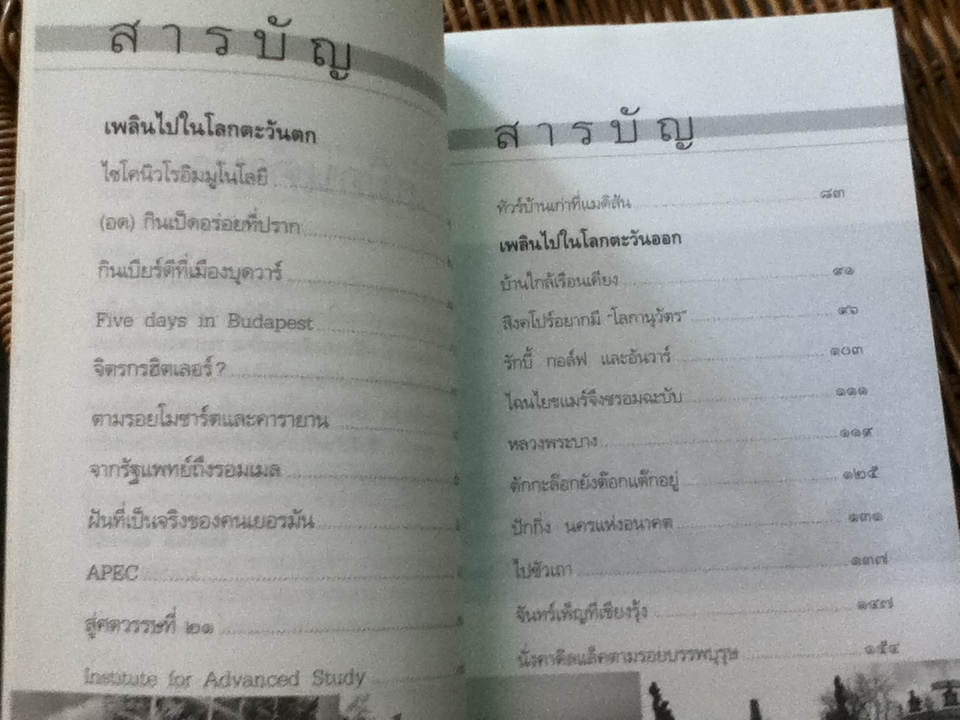 สารบัญ
เพลินไปในโลกตะวันตก
ไซโคนิวโรอิมมูโนโลยี
(อด) กินเป็ดอร่อยที่ปราก
กินเบียร์ดีที่เมืองบุดวาร์
Five days in Budapest
จิตรกรฮิตเลอร์ ?
ตามรอยโมซาร์ตและคารายาน
จากรัฐแพทย์ถึงรอมเมล
ฝันที่เป็นจริงของคนเยอรมัน
APEC
สู่ศตวรรษที่ ๒๑
Institute for Advanced Study
สารบัญ
ทัวร์บ้านเก่าที่แมดิสัน ๘๓
เพลินไปในโลกตะวันออก
บ้านใกล้เรือนเคียง ๙๑
สิงคโปร์อยากมี "โลกานุวัตร" ๙๖
รักบี้ กอล์ฟ และอันวาร์ ๑๐๓
ไฉนไยขแมร์จึงซรอมฉะบับ ๑๑๑
หลวงพระบาง ๑๑๙
ตักกะล๊อกยังต๊อกแต๊กอยู่ ๑๒๕
ปักกิ่ง นครแห่งอนาคต ๑๓๑
ไปซัวเถา ๑๓๗
จันทร์เพ็ญที่เชียงรุ้ง ๑๔๗
นั่งคาดิลแล็คตามรอยบรรพบุรุษ ๑๕๔